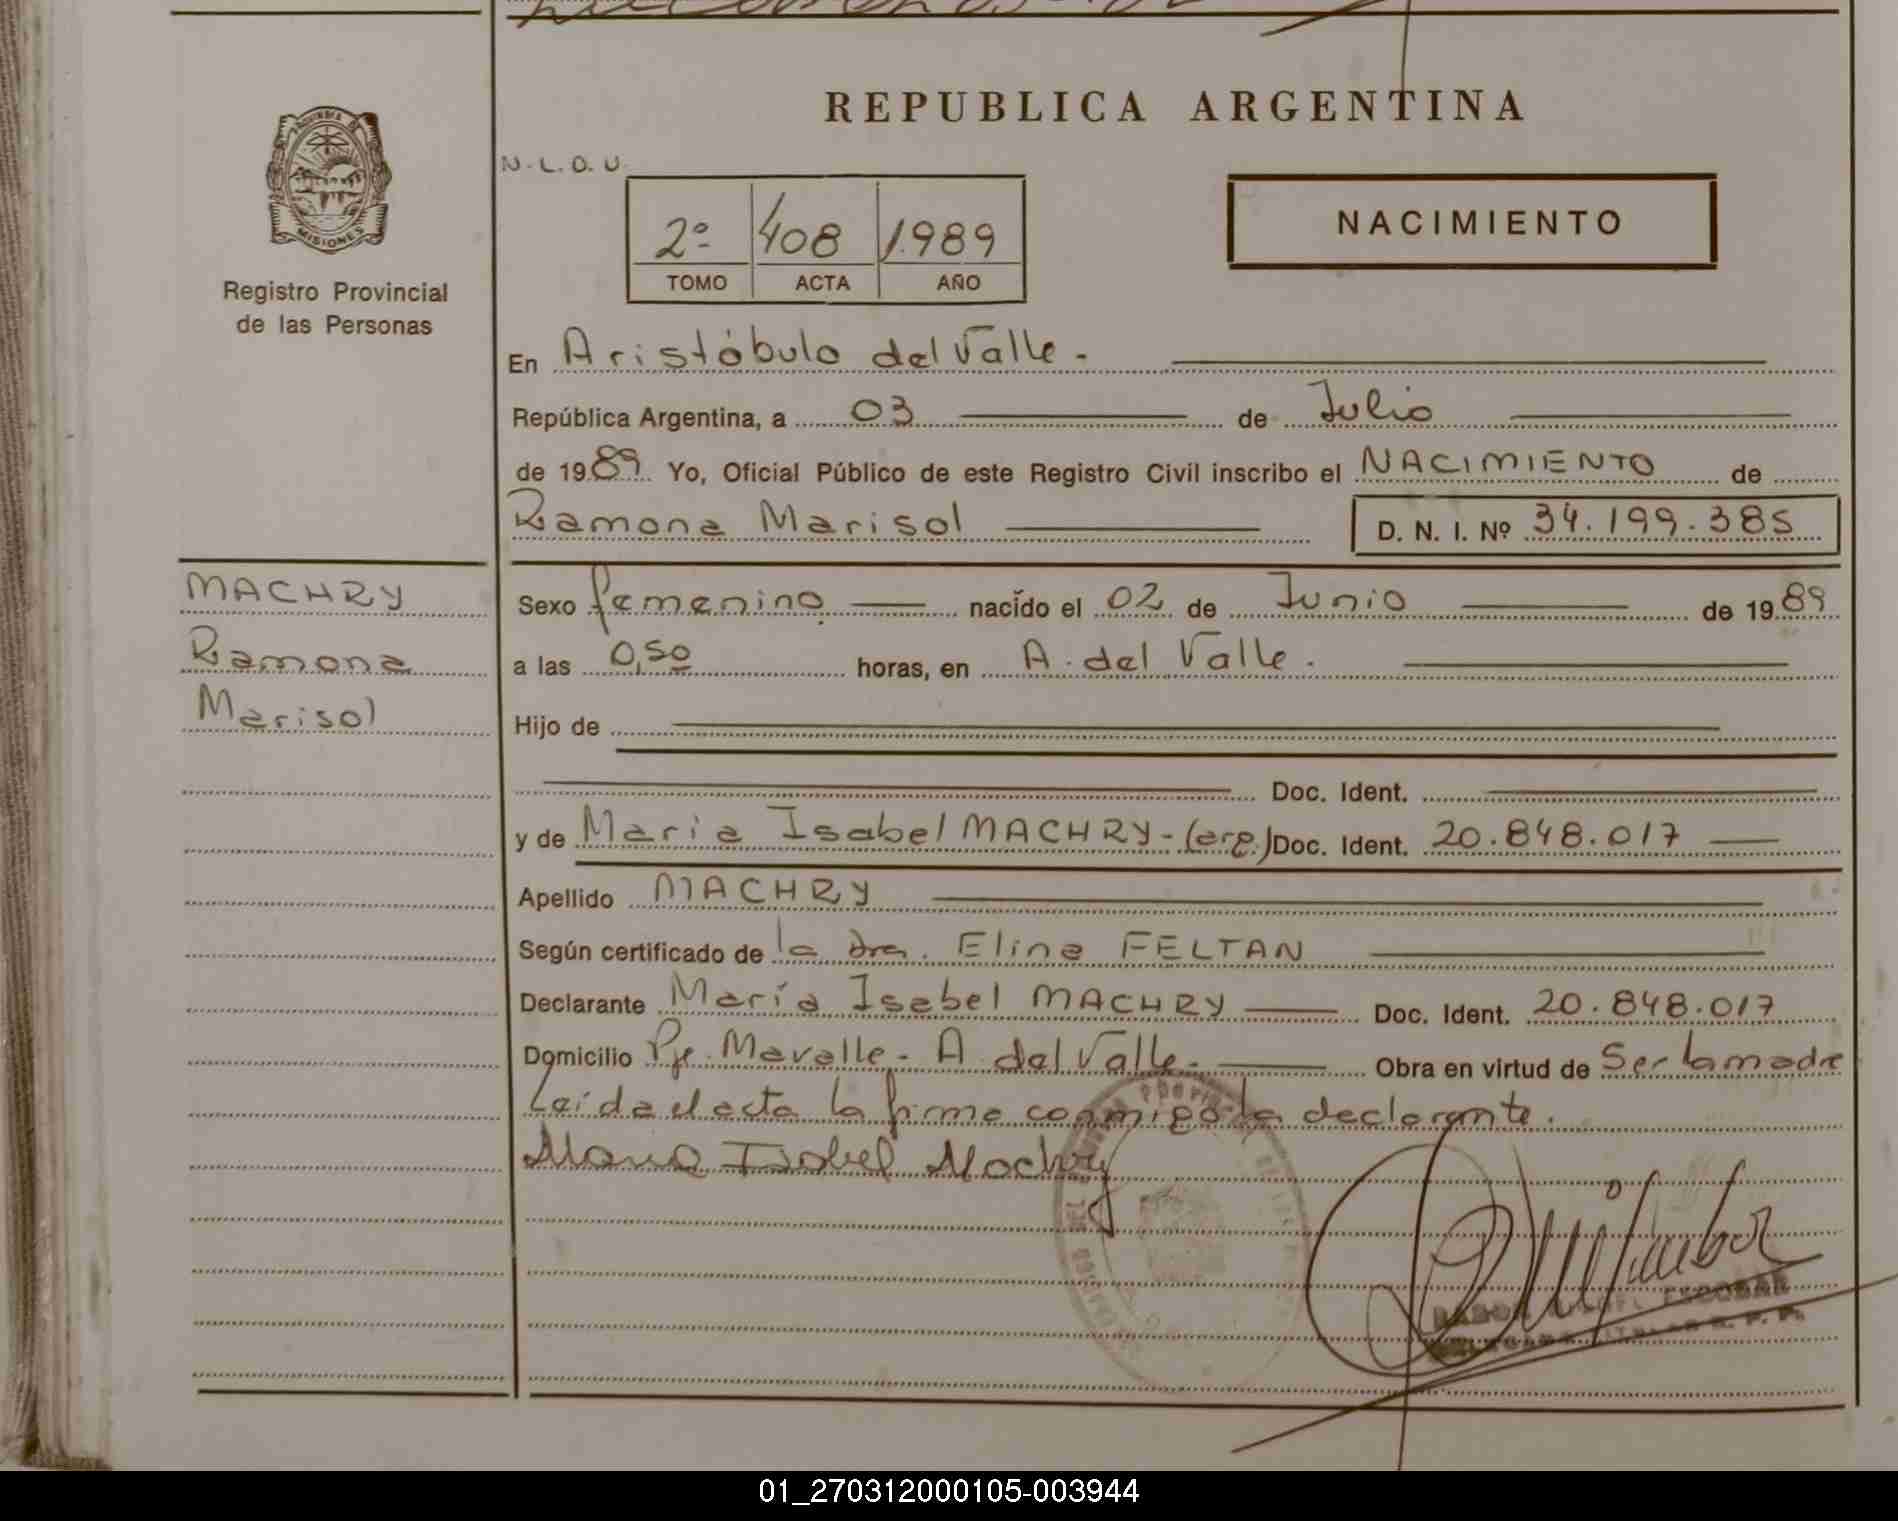 REPUBLICA ARGENTINA
N.L.O.U.
MISIONES
Registro Provincial
de las Personas
2º 408 1.989
TOMO ACTA AÑO
NACIMIENTO
En Aristóbulo del Valle.-
República Argentina, a 03 de Julio
de 1989 Yo, Oficial Público de este Registro Civil inscribo el NACIMIENTO de
Ramona Marisol D. N. I. Nº 34.199.385
MACHRY
Ramona
Marisol
Sexo femenino nacido el 02 de Junio de 1989
a las 0,50 horas, en A. del Valle.
Hijo de
Doc. Ident.
y de Maria Isabel MACHRY-(arg.) Doc. Ident. 20.848.017
Apellido MACHRY
Según certificado de la dra. Elina FELTAN
Declarante María Isabel MACHRY Doc. Ident. 20.848.017
Domicilio Pje. Mavalle- A. del Valle.- Obra en virtud de Ser la madre
Leída el acta la firma conmigo la declarante.
Maria Isabel Machry
ESCOBAR
01_270312000105-003944